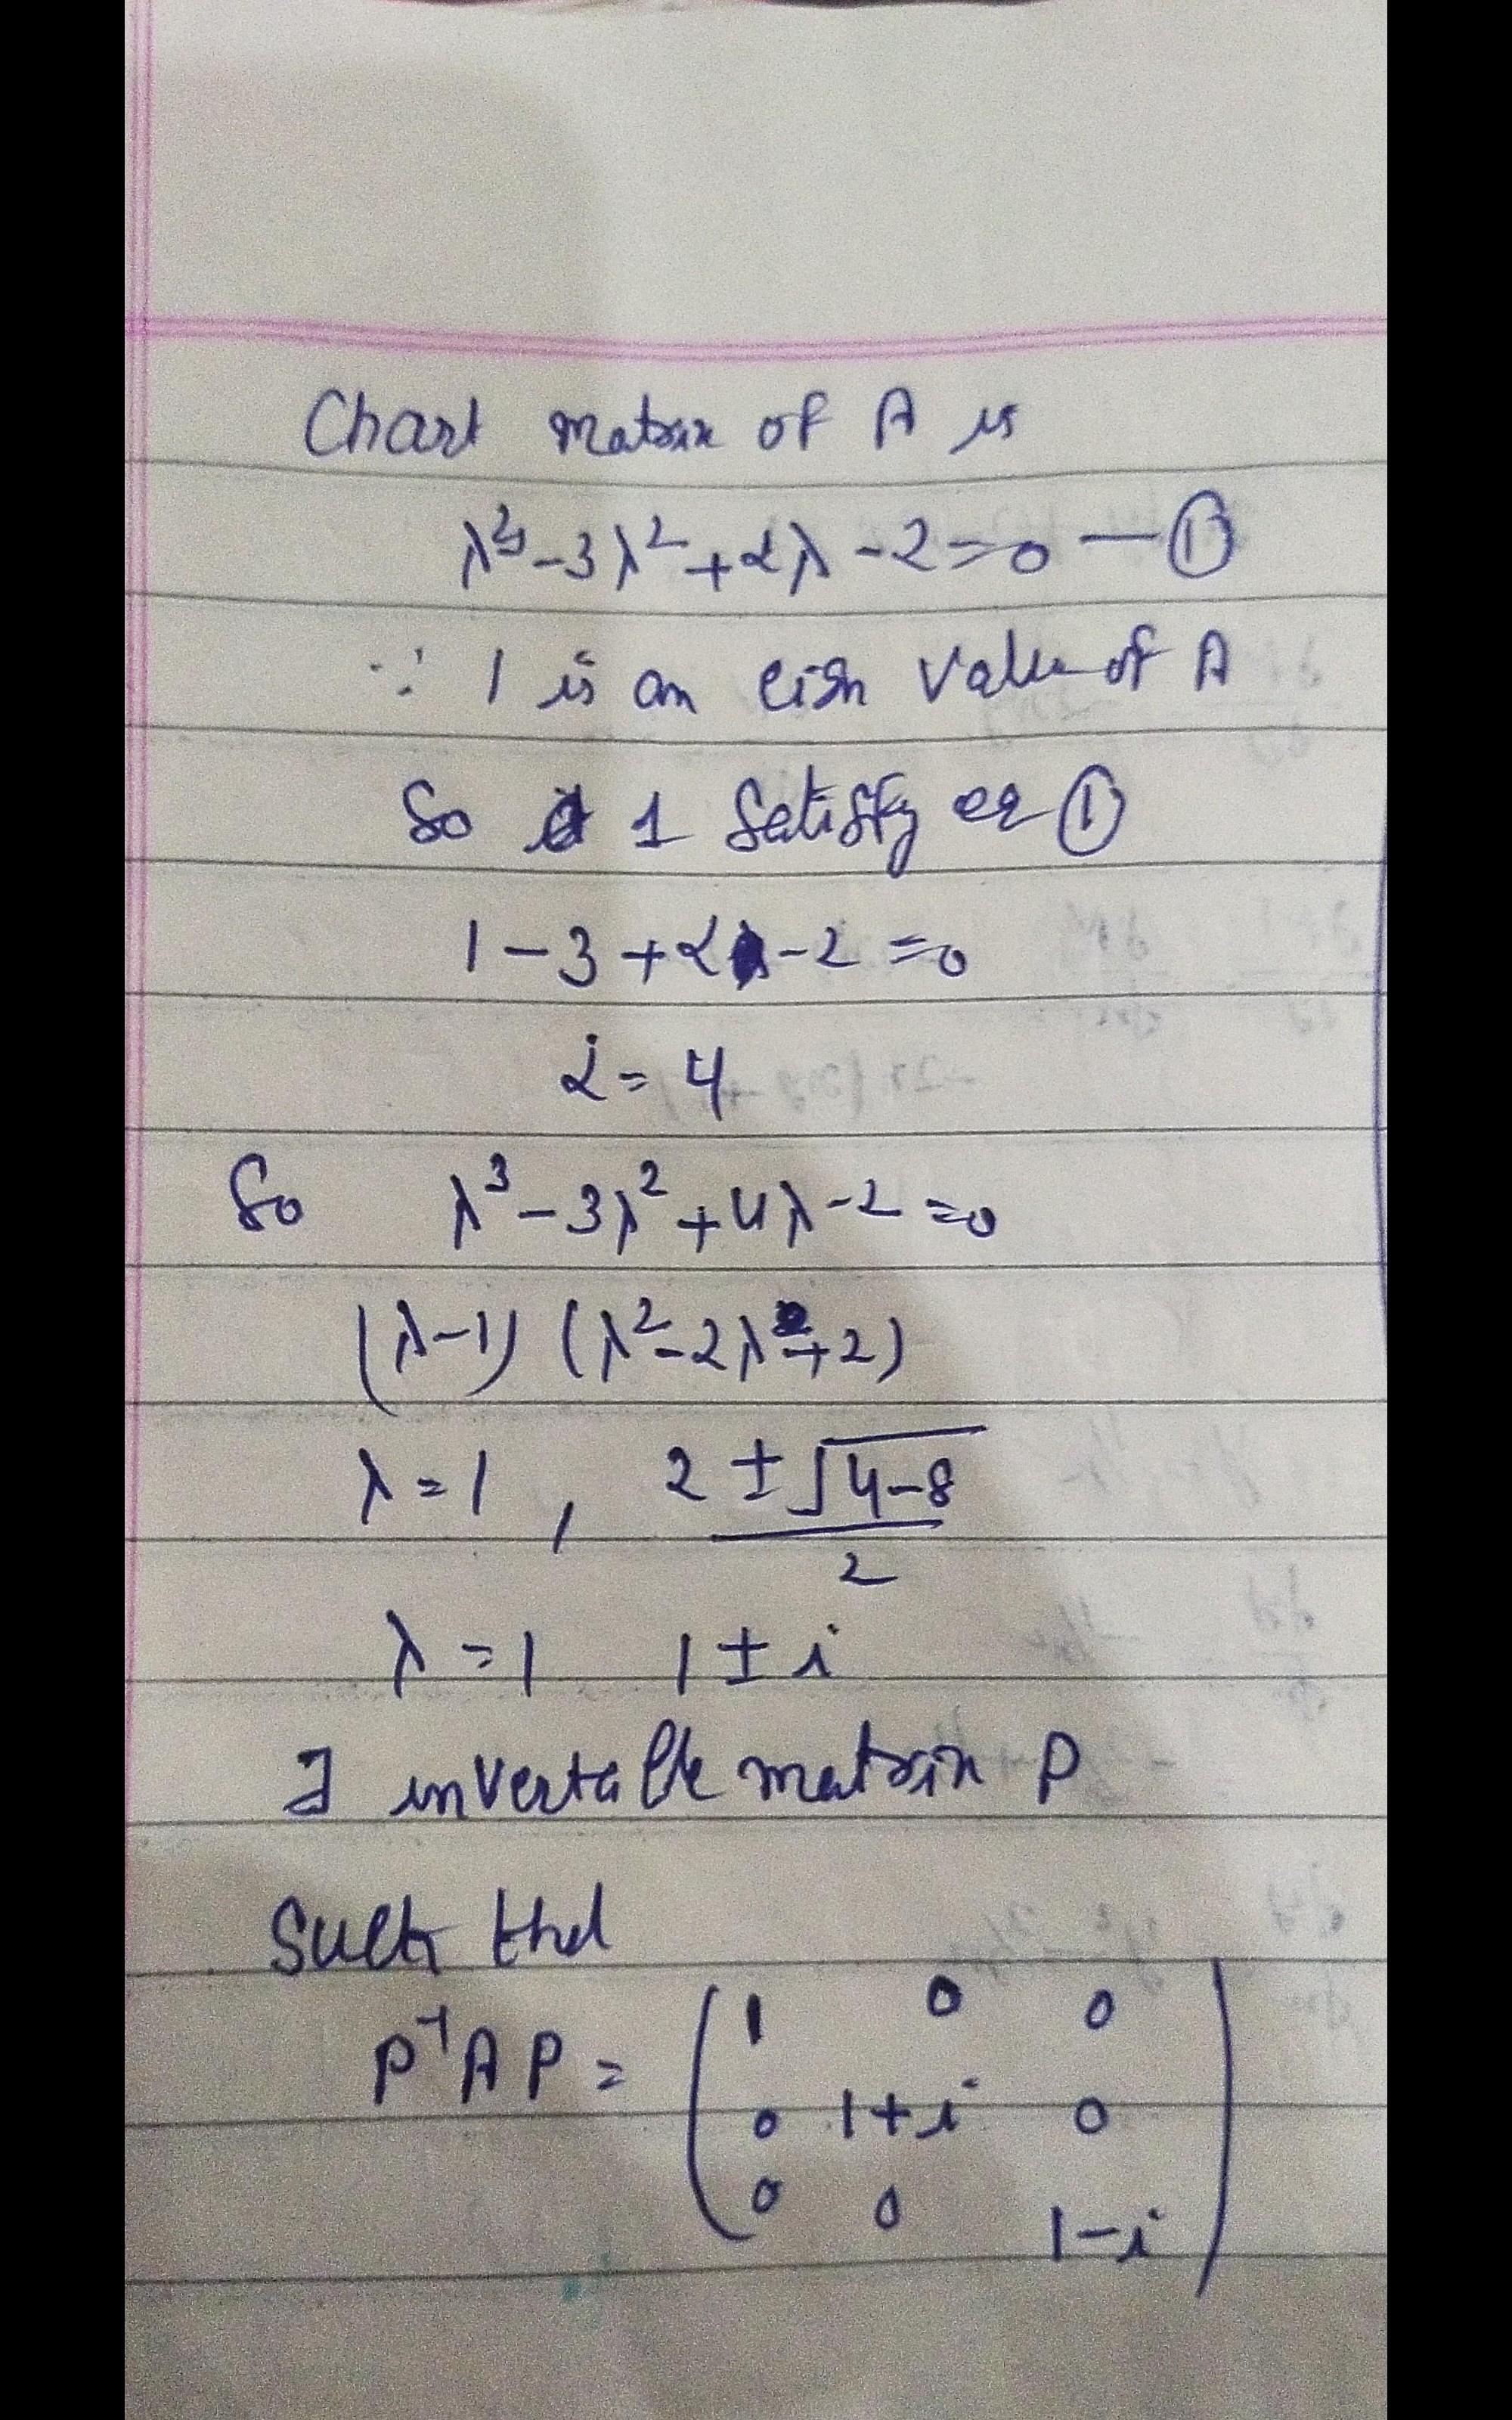 Chart matrix of A is
λ³-3λ²+αλ-2=0 — ①
∵ 1 is an eign value of A
So 1 Satisfy eq ①
1-3+α-2=0
α=4
So λ³-3λ²+4λ-2=0
(λ-1) (λ²-2λ+2)
λ=1 , 2±√4-8
2
λ=1 1±i
∃ invertable matrix P
Such that
P⁻¹AP = ( 1 0 0
0 1+i 0
0 0 1-i )